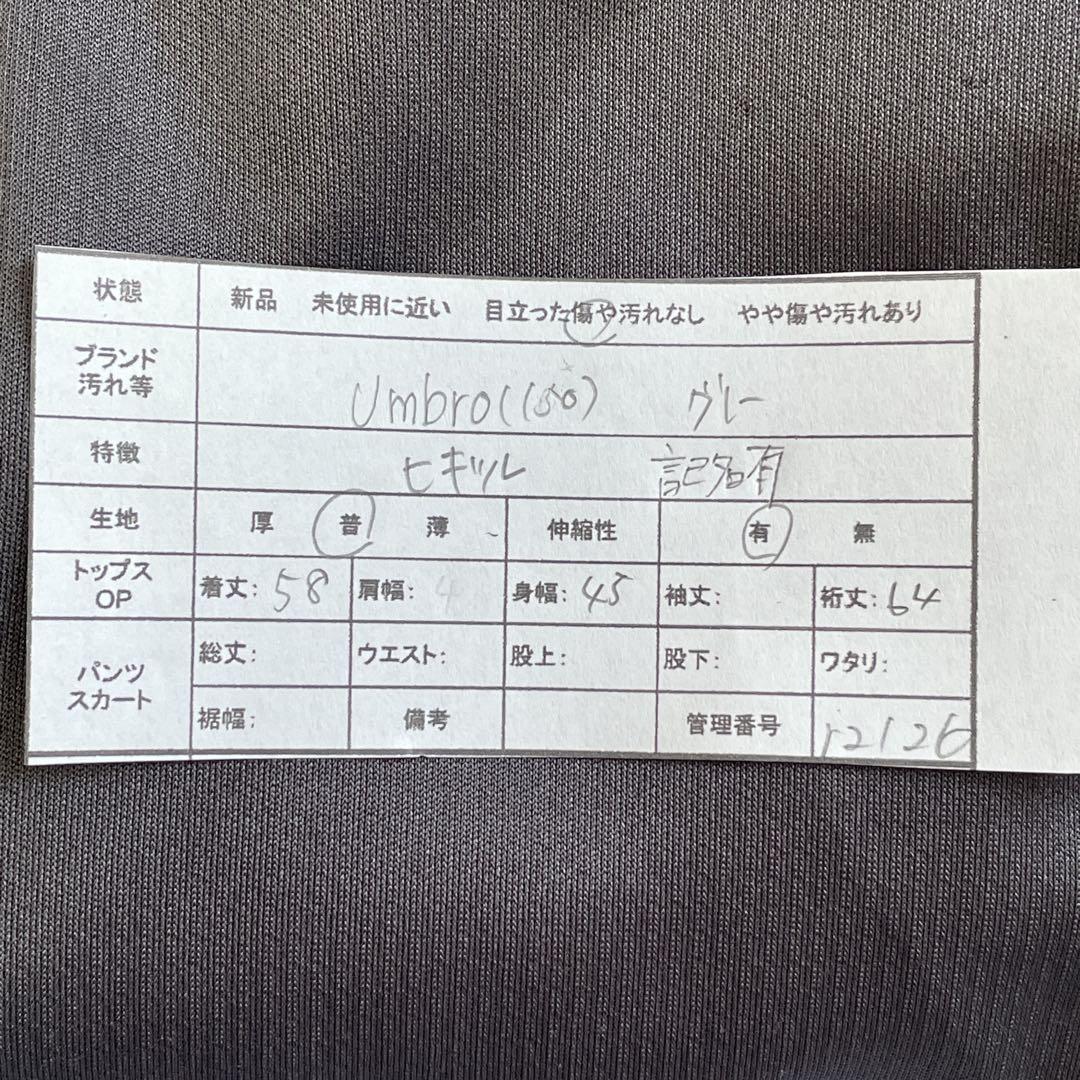 状態 新品 未使用に近い 目立った傷や汚れなし やや傷や汚れあり
ブランド
汚れ等
Umbro(150) グレー
特徴 ヒキツレ 記名有
生地 厚 普 薄 伸縮性 有 無
トップス
OP
着丈: 58 肩幅: 身幅: 45 袖丈: 裄丈: 64
パンツ
スカート
総丈: ウエスト: 股上: 股下: ワタリ:
裾幅: 備考 管理番号 12126